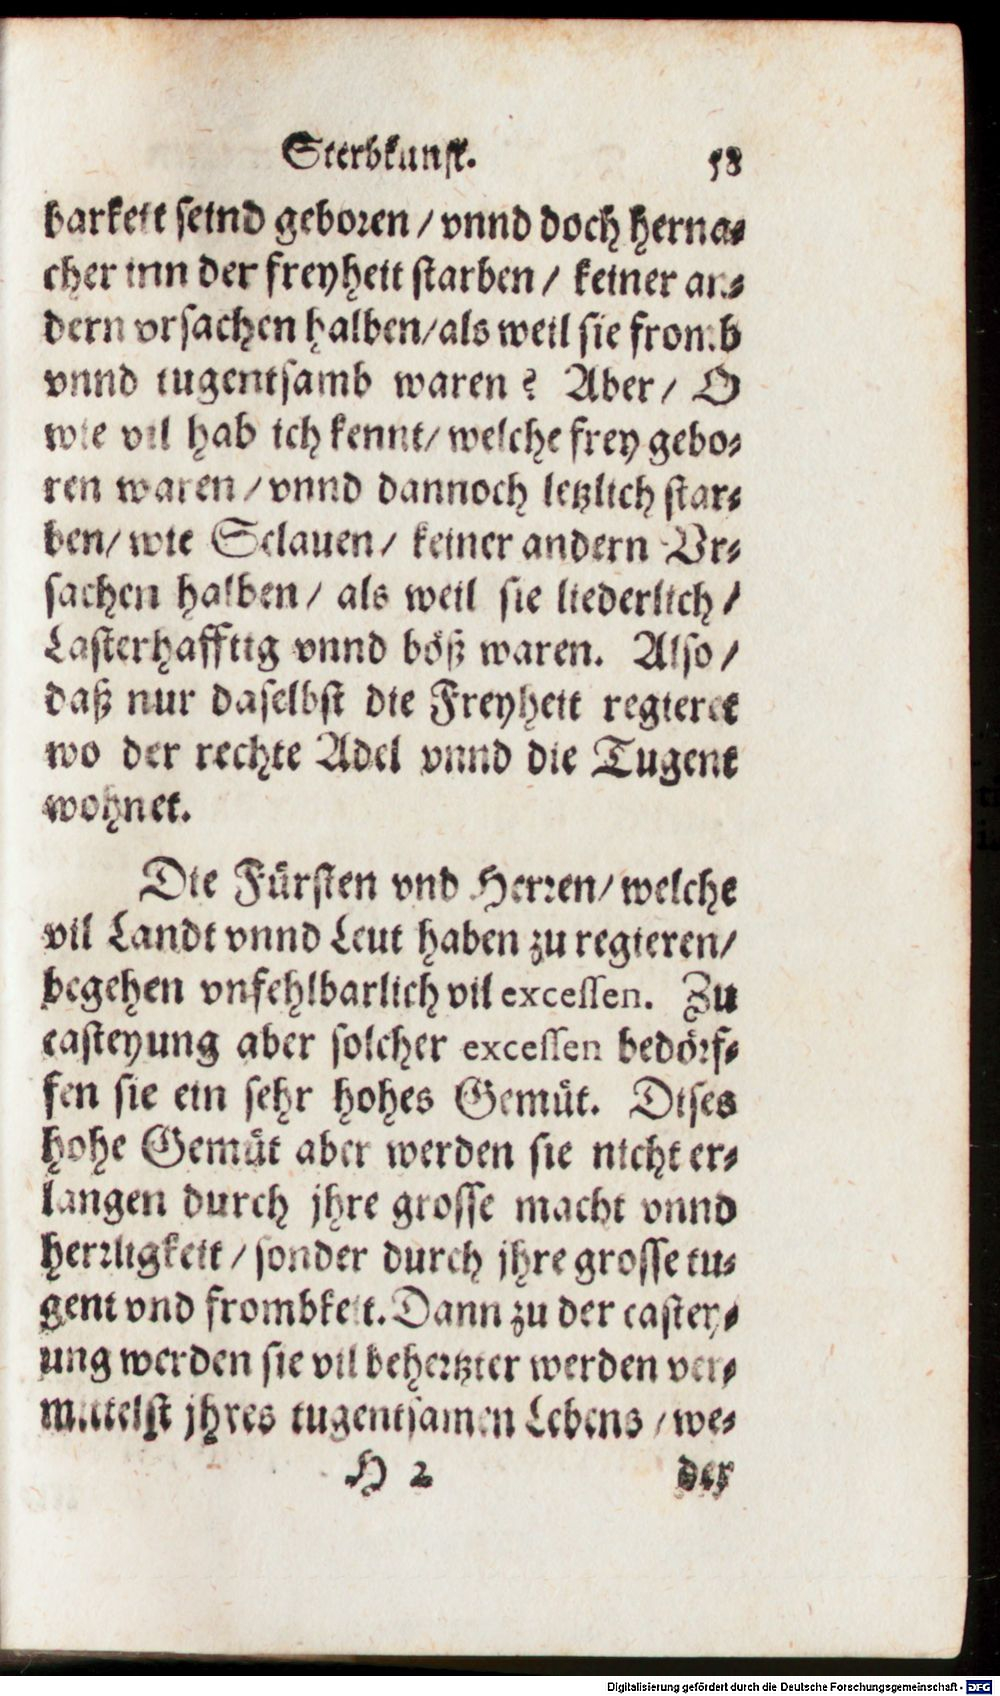 Sterbkunst. 58
barkeit seind geboren / vnnd doch herna-
cher inn der freyheit starben / keiner an-
dern vrsachen halben / als weil sie fromb
vnnd tugentsamb waren? Aber / O
wie vil hab ich kennt / welche frey gebo-
ren waren / vnnd dannoch letzlich star-
ben / wie Sclauen / keiner andern Vr-
sachen halben / als weil sie liederlich /
Lasterhafftig vnnd böß waren. Also /
daß nur daselbst die Freyheit regieret
wo der rechte Adel vnnd die Tugent
wohnet.
Die Fürsten vnd Herren / welche
vil Landt vnnd Leut haben zu regieren /
begehen vnfehlbarlich vil excessen. Zu
casteyung aber solcher excessen bedörf-
fen sie ein sehr hohes Gemüt. Dises
hohe Gemüt aber werden sie nicht er-
langen durch jhre grosse macht vnnd
herrligkeit / sonder durch jhre grosse tu-
gent vnd frombkeit. Dann zu der castey-
ung werden sie vil behertzter werden ver-
mittelst jhres tugentsamen Lebens / we-
H 2 der
Digitalisierung gefördert durch die Deutsche Forschungsgemeinschaft - DFG